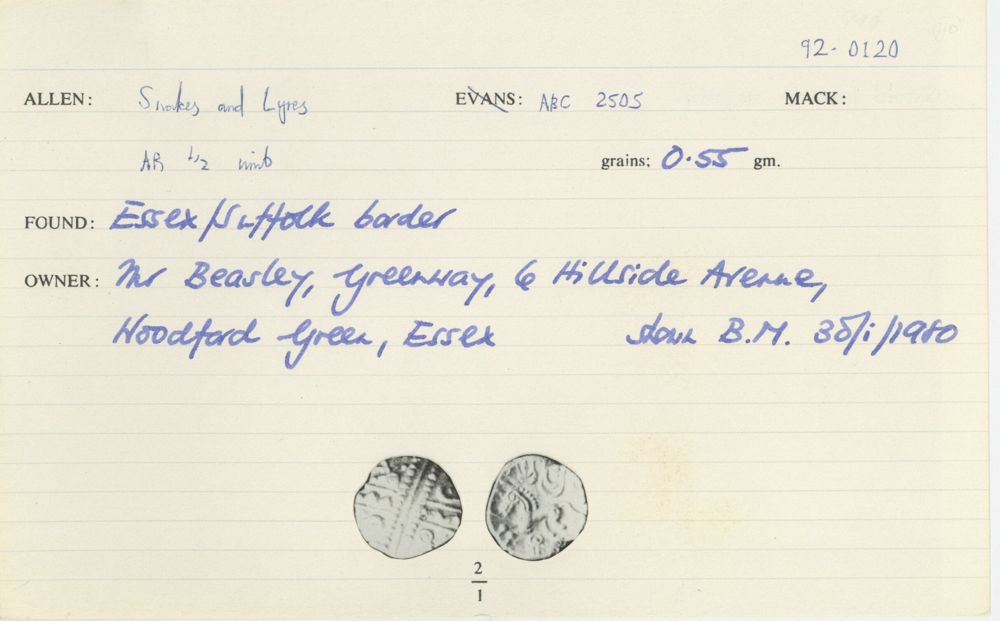 92-0120
ALLEN: Snakes and Lyres EVANS: ABC 2505 MACK:
AR ½ unit grains: 0.55 gm.
FOUND: Essex/Suffolk border
OWNER: Mr Beasley, Greenway, 6 Hillside Avenue,
Woodford Green, Essex shown B.M. 30/i/1980
2
1